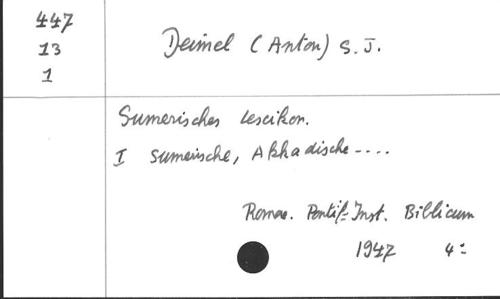 447
13
1
Deimel (Anton) S. J.
Sumerisches Lescikon.
I Sumerische, Akkadische ....
Romae. Pontif. Inst. Biblicum
1947 4º